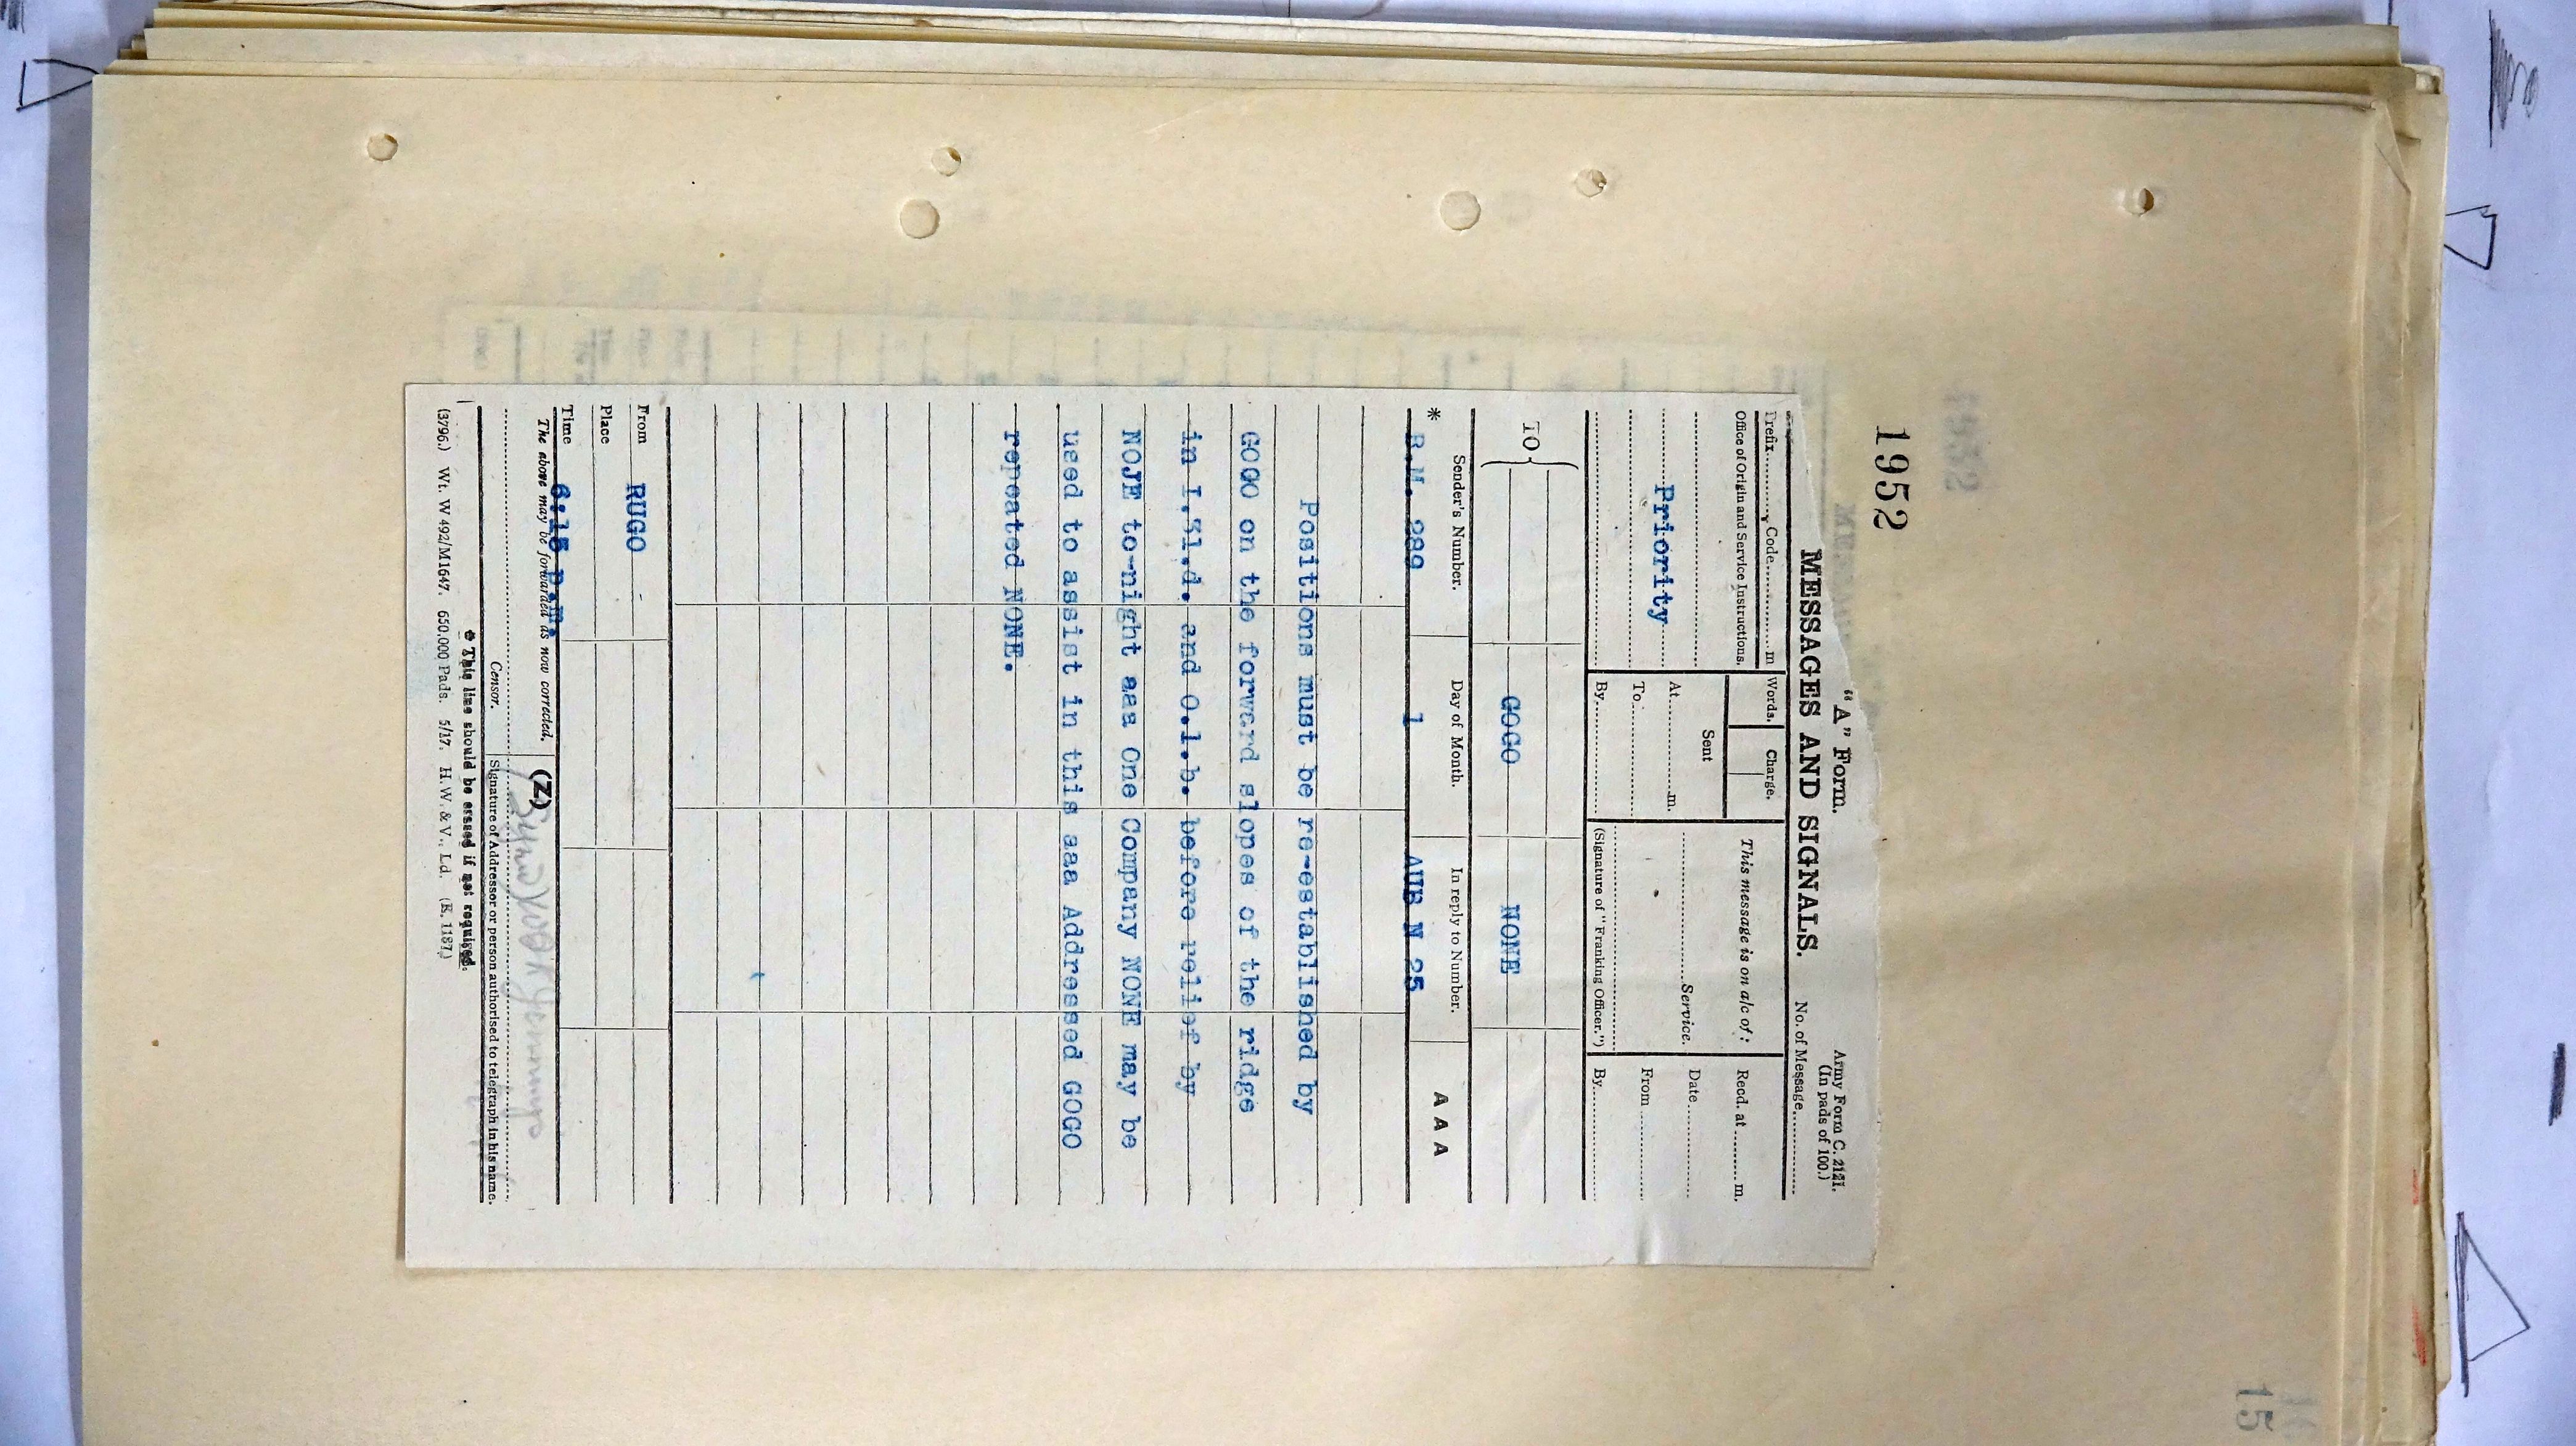 1952
"A" Form.
Army Form C. 2121.
(In pads of 100.)
MESSAGES AND SIGNALS.
No. of Message
Prefix Code m
Words.
Charge.
This message is on a/c of:
Recd. at m.
Office of Origin and Service Instructions.
Sent
Service.
Date
Priority
At m.
From
To
By
(Signature of "Franking Officer.")
By
TO
GOGO
NONE
Sender's Number.
Day of Month.
In reply to Number.
A A A
* B.M. 289
1
AUB N 25
Positions must be re-established by
GOGO on the forward slopes of the ridge
in I.31.d. and O.1.b. before relief by
NOJE to-night aaa One Company NONE may be
used to assist in this aaa Addressed GOGO
repeated NONE.
From RUGO
Place
Time 6:15 p.m.
The above may be forwarded as now corrected.
(Z)
Censor.
Signature of Addressor or person authorised to telegraph in his name.
* This line should be erased if not required.
(3796.) Wt. W 492/M1647. 650,000 Pads. 5/17. H.W. & V., Ld. (E. 1187.)
15